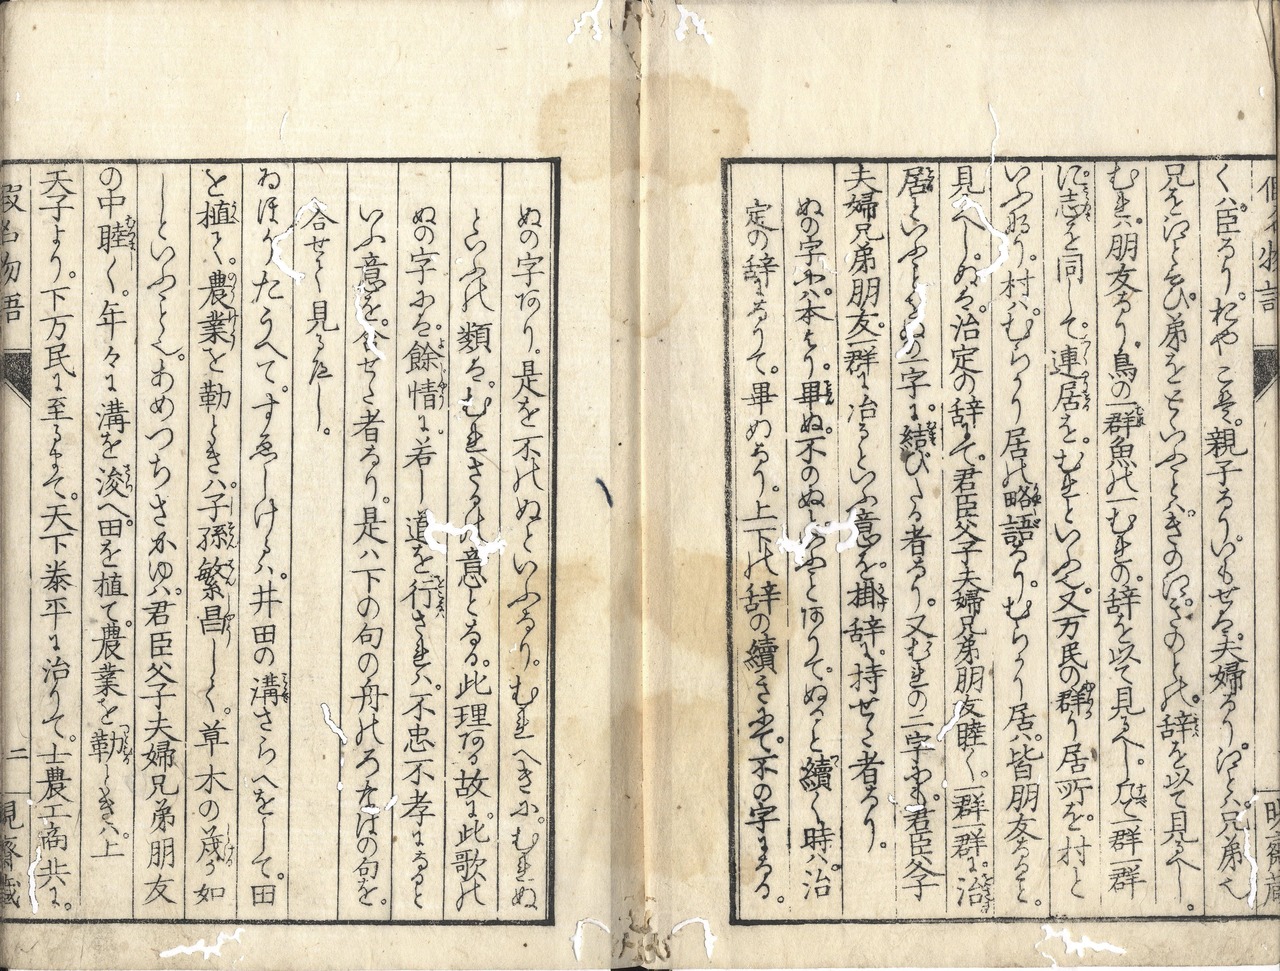 く。ハ臣なり。おやこを。親子なり。いもせを。夫婦なり。はらハ兄弟也
兄をはらとひ弟をといふとハきのはさのとの。辞を以て見るべし。
むれハ。朋友なり。鳥の一群魚の一むれの。辞を以て見るべし。一群一群
に志を同して。連居を。むれといふ又万民の群り居所を。村と
いふなり。村ハ。むらがり居の略語なり。むらがり居ハ。皆朋友なると
見べし。ぬを。治定の辞にて。君臣父子夫婦兄弟朋友睦く。一群一群に。治
居といふを。ぬの一字に。結びたる者なり。又むれの二字にも。君臣父子
夫婦兄弟朋友。一群に治るといふ意を。掛辞に。持せた者なり。
ぬの字にハ。本より。畢ぬ。不のぬといふとありて。ぬると續く時ハ。治
定の辞なりて。畢ぬなり。上下の辞の續きにて。不の字になる。
ぬの字あり。是を不のぬといふなり。むれべきに。むれぬ
といふの類を。むれざるの意となる。此理ある故に。此歌の
ぬの字にを。餘情に。若し道を行されハ。不忠不孝になると
いふ意を。含せた者なり。是ハ下の句の舟のろなはの句を。
合せて見るべし。
ゐほりたうへて。すゑしけるハ。井田の溝さらへをして。田
を植て。農業を勤ときハ。子孫繁昌して。草木の茂るか如
しといふこと。あめつちさかゆハ。君臣父子夫婦兄弟朋友
の中睦く。年々に溝を浚へ。田を植て。農業を勤ときハ。上
天子より。下万民に至るまで。天下泰平に治りて。士農工商共に。
假名物語
二